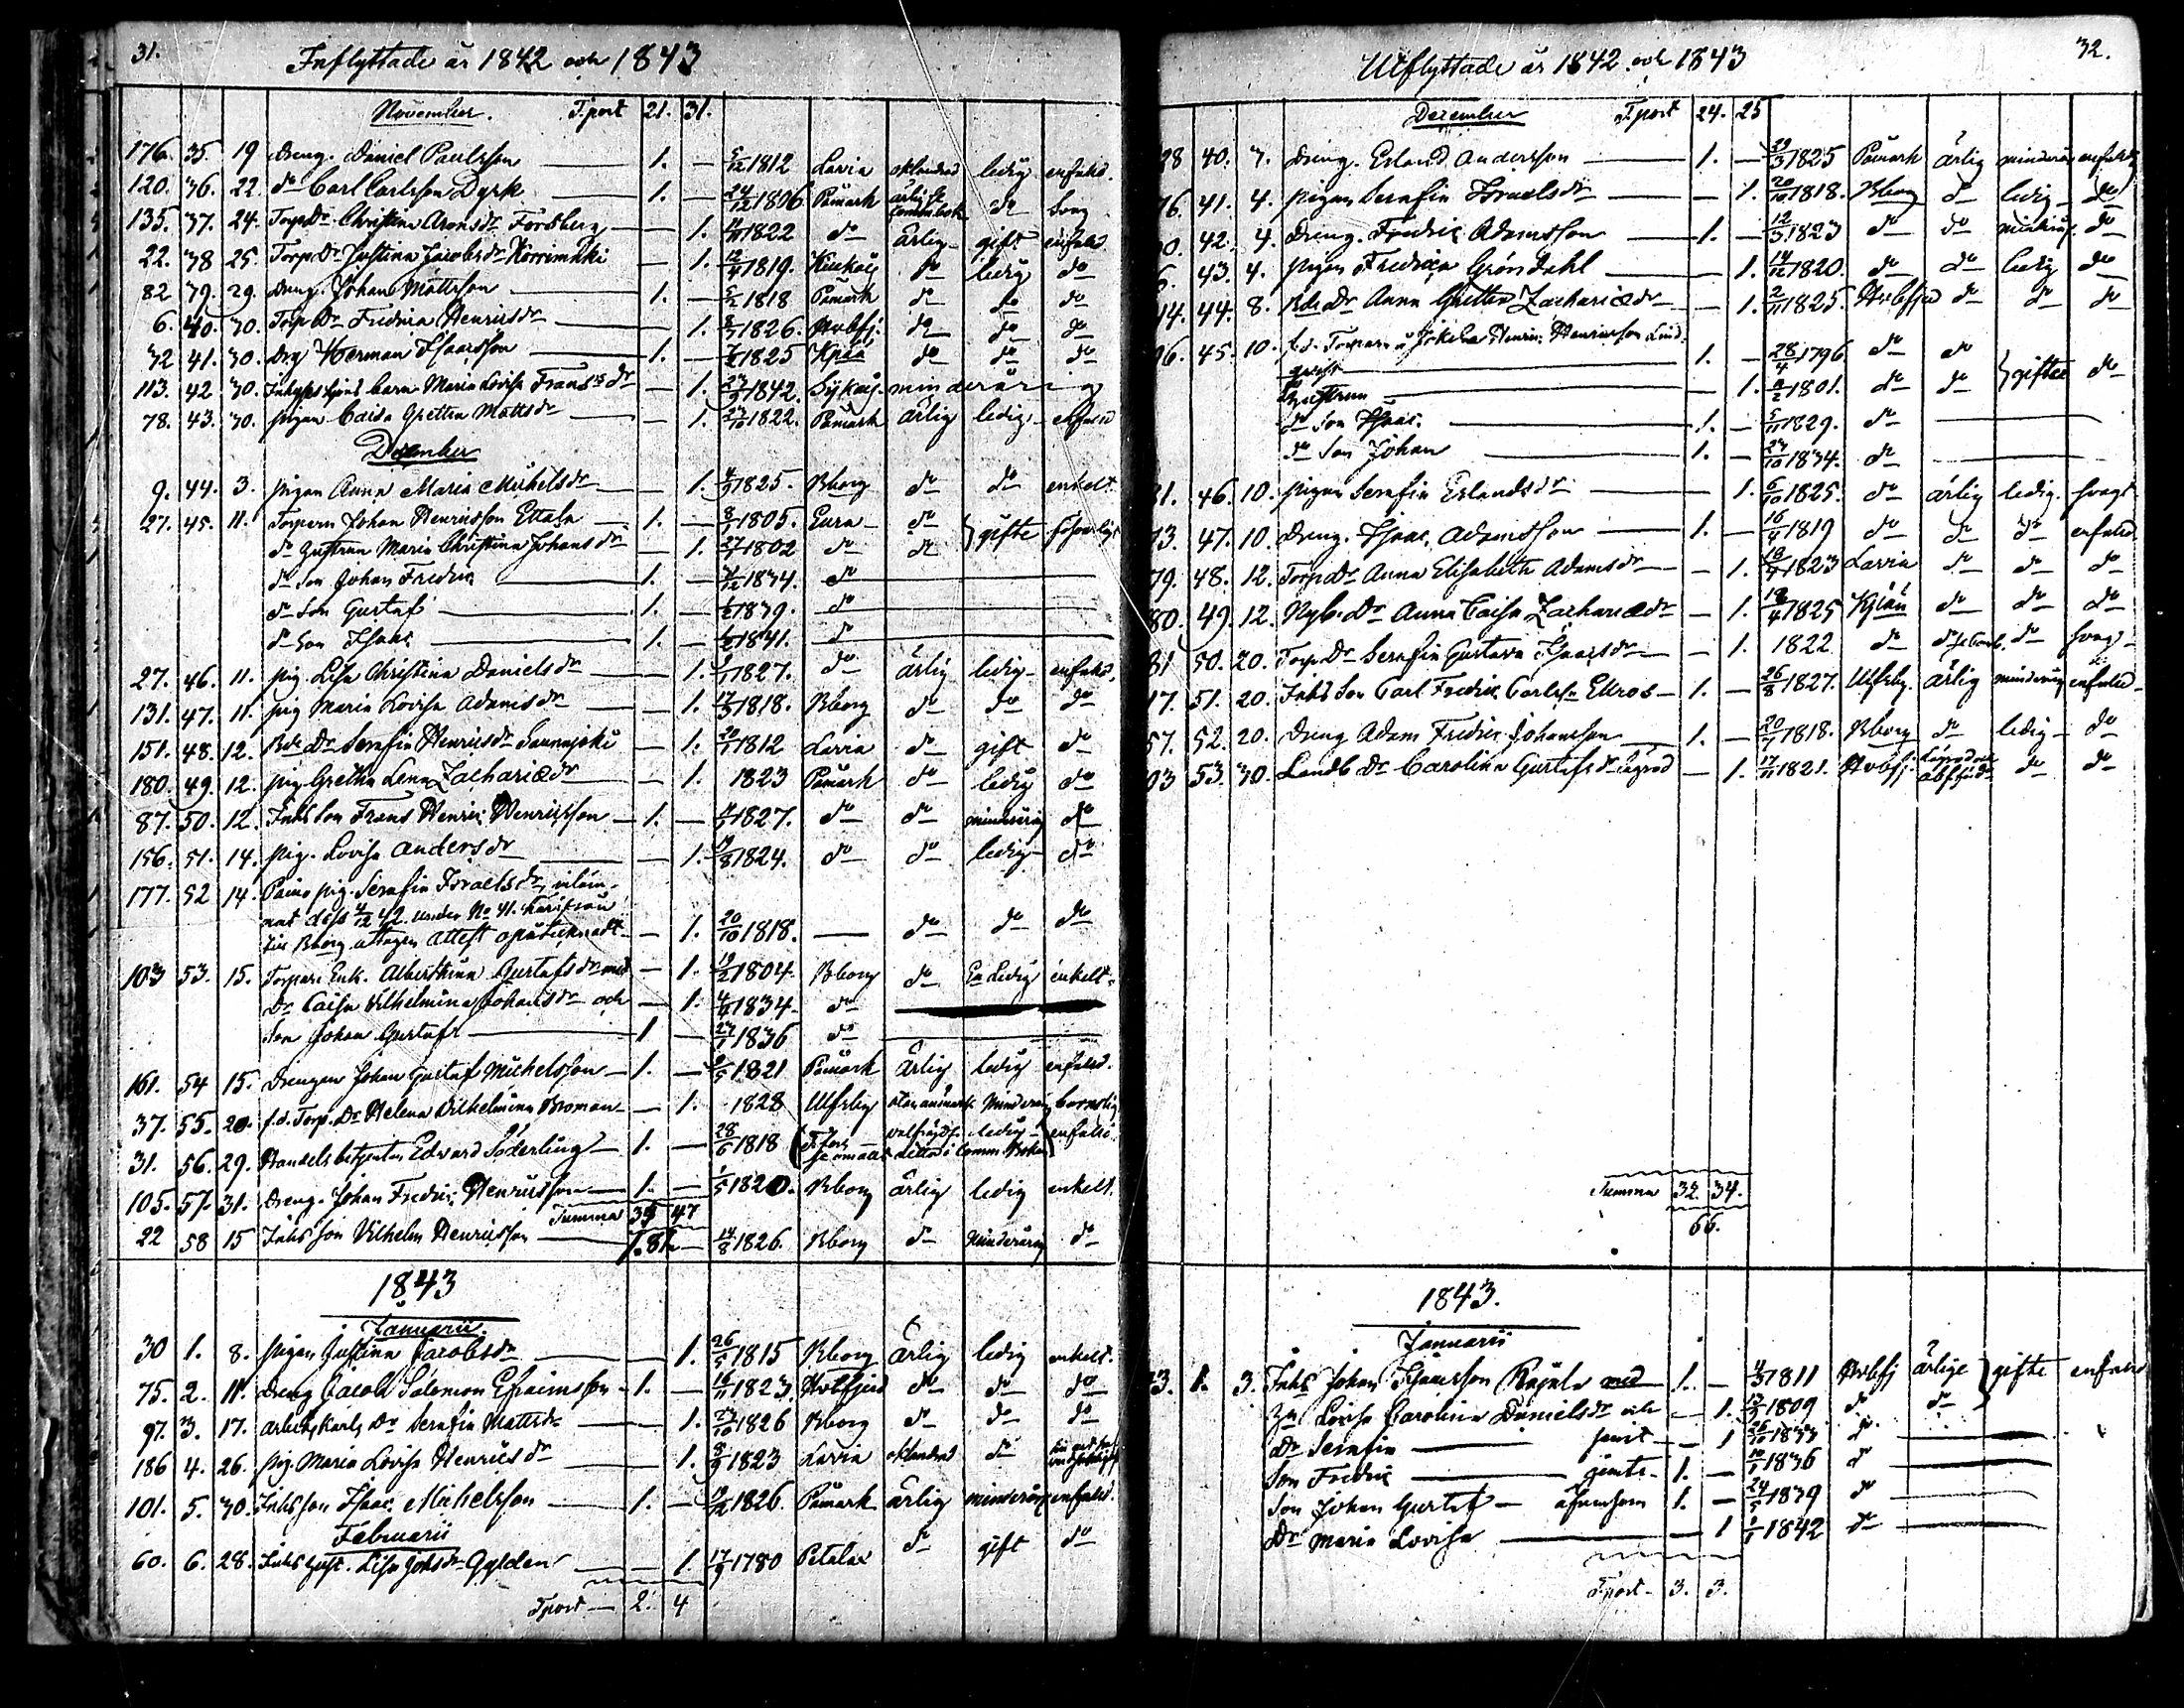 31.
Inflyttade år 1842 och 1843
November. T.port 21. 31.
176. 35. 19 Dreng. Daniel Paulsson 1. — 5/12 1812 Lavia oklandrad ledig enfald.
120. 36. 22. do Carl Carlsson Dyrk 1. — 24/12 1806 Påmark ärlig do
135. 37. 24. Torp.Dr Christina Aronsdr Forsberg — 1. 1822 do ärlig gift enfald
22. 38 25. Torp.Dr Justina Jacobsdr Korrimäki — 1. 12/4 1819. do ledig do
82 39. 29. Dreng. Johan Mattsson 1. — 5/2 1818 Påmark do do do
6. 40. 30. Torp Dr Fredrica Henricsdr — 1. 1826. Hvbfj. do do do
32 41. 30. Drg Herman Isaacsson 1. — 1825 do do do
113. 42 30. barn Maria Lovisa Fransdr — 1. 1842. minderårig
78. 43. 30. pigan Caisa Gretha Mattsdr — 1. 27/10 1822. Påmark ärlig ledig
December
9. 44. 3. pigan Anna Maria Michelsdr — 1. 1825. Bborg do do enkelt
27. 45. 11. Torparn Johan Henricsson Ettala 1. — 8/1 1805. Eura do } gifte
do Hustrun Maria Christina Johansdr — 1. 1802 do do
do Son Johan Fredric 1. — 1834. do
do Son Gustaf 1. — 1839. do
do Son Isaac 1. — 1841. do
27. 46. 11. pig. Lisa Christina Danielsdr — 1. 1827. do ärlig ledig enfald.
131. 47. 11. pig Maria Lovisa Adamsdr — 1. 17/3 1818. Bborg do do do
151. 48. 12. Bde Dr Serafia Henricsdr — 1. 1812 Lavia do gift do
180. 49. 12. pig. Gretha Lena Zachariædr — 1. 1823 Påmark do ledig do
87. 50. 12. Inhs Son Frans Henric Henricsson 1. — 1827. do do minderårig do
156. 51. 14. pig. Lovisa Andersdr — 1. 19/8 1824. do do ledig do
177. 52 14. pig. Serafia Israelsdr, inläm-
nat dess 4/12 42. under No 41. härifrån
till Bborg uttagen attest — 1. 20/10 1818. — do do do
103 53. 15. Torpare Enk. Albertina Gustafsdr med — 1. 19/2 1804. Bborg do En Ledig enkelt.
Dr Caisa Vilhelmina Johansdr och — 1. 1834. do
Son Johan Gustaf 1 — 27/1 1836 do
161. 54 15. Drengen Johan Gustaf Michelsson 1. — 1821 Påmark ärlig ledig enfald.
37. 55. 20. f.d. Torp. Dr Helena Vilhelmina Broman — 1. 1828 Ulfsby utan anmärk. Minderårig
31. 56. 29. Handelsbetjenten Edvard Söderling 1. — 28/6 1818 ledig
105. 57. 31. Dreng. Johan Fredric Henricsson 1. — 1/5 1820. Bborg ärlig ledig enkelt.
Summa 34 47
22 58 15 Inhs Son Vilhelm Henricsson 1.81 — 14/8 1826. Bborg do Minderårig do
1843
Januarii.
30 1. 8. pigan Justina Jacobsdr — 1. 26/5 1815 Bborg ärlig ledig enkelt.
75. 2. 11. Dreng Jacob Salomon Efraimsson 1. — 16/11 1823 Hvitfjerd do do do
97. 3. 17. Arbetskarls Dr Serafia Mattsdr — 1. 23/10 1826 Bborg do do do
186 4. 26. pig. Maria Lovisa Henricsdr — 1. 8/9 1823 Lavia oklandrad do
101. 5. 30. Inhs Son Isaac Michelsson 1. — 1826. Påmark ärlig minderårig enfald.
Februarii
60. 6. 28. Inhs Hust. Lisa Johsdr Gylden — 1. 17/9 1780 Petalax do gift do
T.port — 2. 4
Utflyttade år 1842. och 1843
32.
December T.port 24. 25
28 40. 3. Dreng. Erland Andersson 1. — 29/3 1825 Påmark ärlig minderår. enfald
76. 41. 4. pigan Serafia Israelsdr — 1. 20/10 1818. Bborg do ledig do
42. 4. Dreng. Fredric Adamsson 1. — 12/3 1823 do do do
43. 4. pigan Fredrica Gröndahl — 1. 14/12 1820. do do ledig do
14. 44. 8. Bde Dr Anna Gretha Zachariædr — 1. 2/11 1825. Hvbfjrd do do do
96. 45. 10. f.d. Torparn Henric Henricsson Lind-
1. — 28/4 1796 do do } giftee do
Hustrun — 1. 1801. do do
do Son Isaac. 1. — 5/11 1829. do
do Son Johan 1. — 27/10 1834. do
81. 46. 10. pigan Serafia Erlandsdr — 1. 6/10 1825. do ärlig ledig. svagt
73. 47. 10. Dreng. Isaac Adamsson 1. — 16/4 1819 do do do enfald
79. 48. 12. Torp.Dr Anna Elisabeth Adamsdr — 1. 1823 Lavia do do do
80. 49. 12. Nyb. Dr Anna Caisa Zachariædr — 1. 18/4 1825 do do do
81 50. 20. Torp.Dr Serafia Gustava Isaacsdr — 1. 1822 do do svag
17. 51. 20. Inhs Son Carl Fredric Carlssn Ekros 1. — 26/8 1827. Ulfsby. ärlig minderårig enfald
57. 52. 20. Dreng Adam Fredric Johansson 1. — 20/7 1818. Bborg do ledig do
103 53. 30. Landb Dr Carolina Gustafsdr — 1. 17/11 1821. Hvbfj. do do
Summa 32. 34.
66.
1843.
Januarii
73. 1. 3. Inhs Johan Isaacsson Rajala med 1. — 4/3 1811 Hvbfj ärlige } gifte enfald
Lovisa Carolina Danielsdr — 1. 1809 do do
Dr Serafia — 1 26/10 1833 do
Son Fredric 1. — 10/1 1836 do
Son Johan Gustaf — äfvensom 1. — 24/5 1839 do
Dr Maria Lovisa — 1 1842 do
T.port — 3. 3.